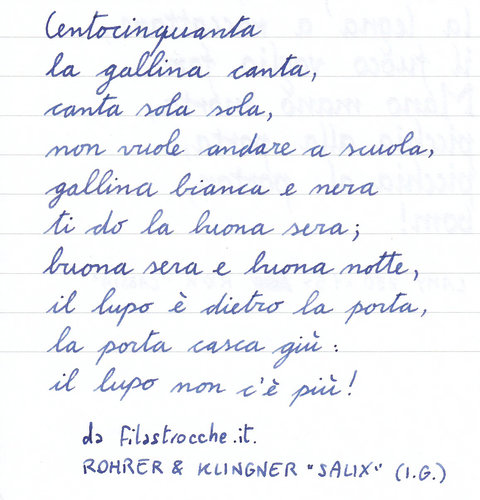 Centocinquanta
la gallina canta,
canta sola sola,
non vuole andare a scuola,
gallina bianca e nera
ti do la buona sera;
buona sera e buona notte,
il lupo è dietro la porta,
la porta casca giù:
il lupo non c'è più!
da filastrocche.it.
ROHRER & KLINGNER "SALIX" (I.G.)